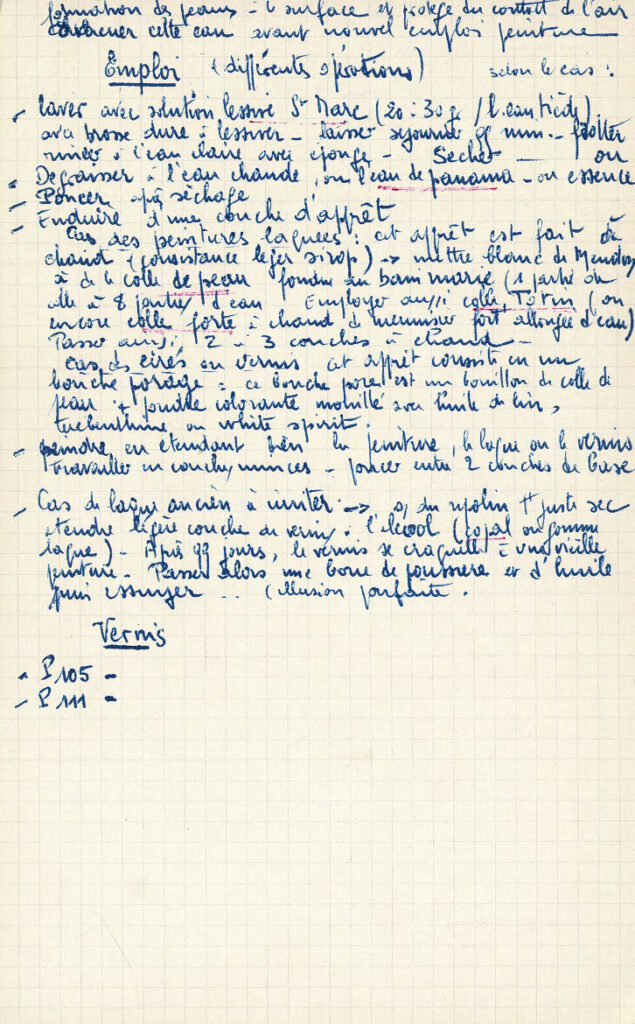 formation des peaux - à surface et protège du contact de l'air
cette eau avant nouvel emploi peinture
Emploi (différentes opérations) selon le cas :
- laver avec solution lessive St Marc (20 à 30 g / l. eau tiède)
avec brosse dure à lessiver - laisser séjourner qq min. - frotter
rincer à l'eau claire avec éponge - Sécher - ou
- Dégraisser à l'eau chaude, ou l'eau de panama - ou essence
- Poncer après séchage
- Enduire d'une couche d'apprêt
Cas des peintures laquées : cet apprêt est fait à
chaud (consistance léger sirop) → mettre blanc de Meudon
à de la colle de peau fondue au bain marie (1 partie de
colle à 8 parties d'eau Employer aussi colle Totin (ou
encore colle forte à chaud de menuisier fort allongée d'eau)
Passer ainsi 2 à 3 couches à chaud -
Cas des cirés ou vernis cet apprêt consiste en un
bouche porage = ce bouche pores est un bouillon de colle de
peau + poudre colorante mouillé avec huile de lin,
térébenthine ou white spirit.
- peindre en étendant bien la peinture, la laque ou le vernis
Travailler en couches minces - poncer entre 2 couches de base
- Cas de laque ancien à imiter → s/ du ripolin juste sec
étendre légère couche de vernis à l'alcool (copal ou gomme
laque) - Après qq jours, le vernis se craquelle = une vieille
peinture - Passer alors une boue de poussière et d'huile
puis essuyer .. (illusion parfaite.
Vernis
- P 105 -
- P 111 -